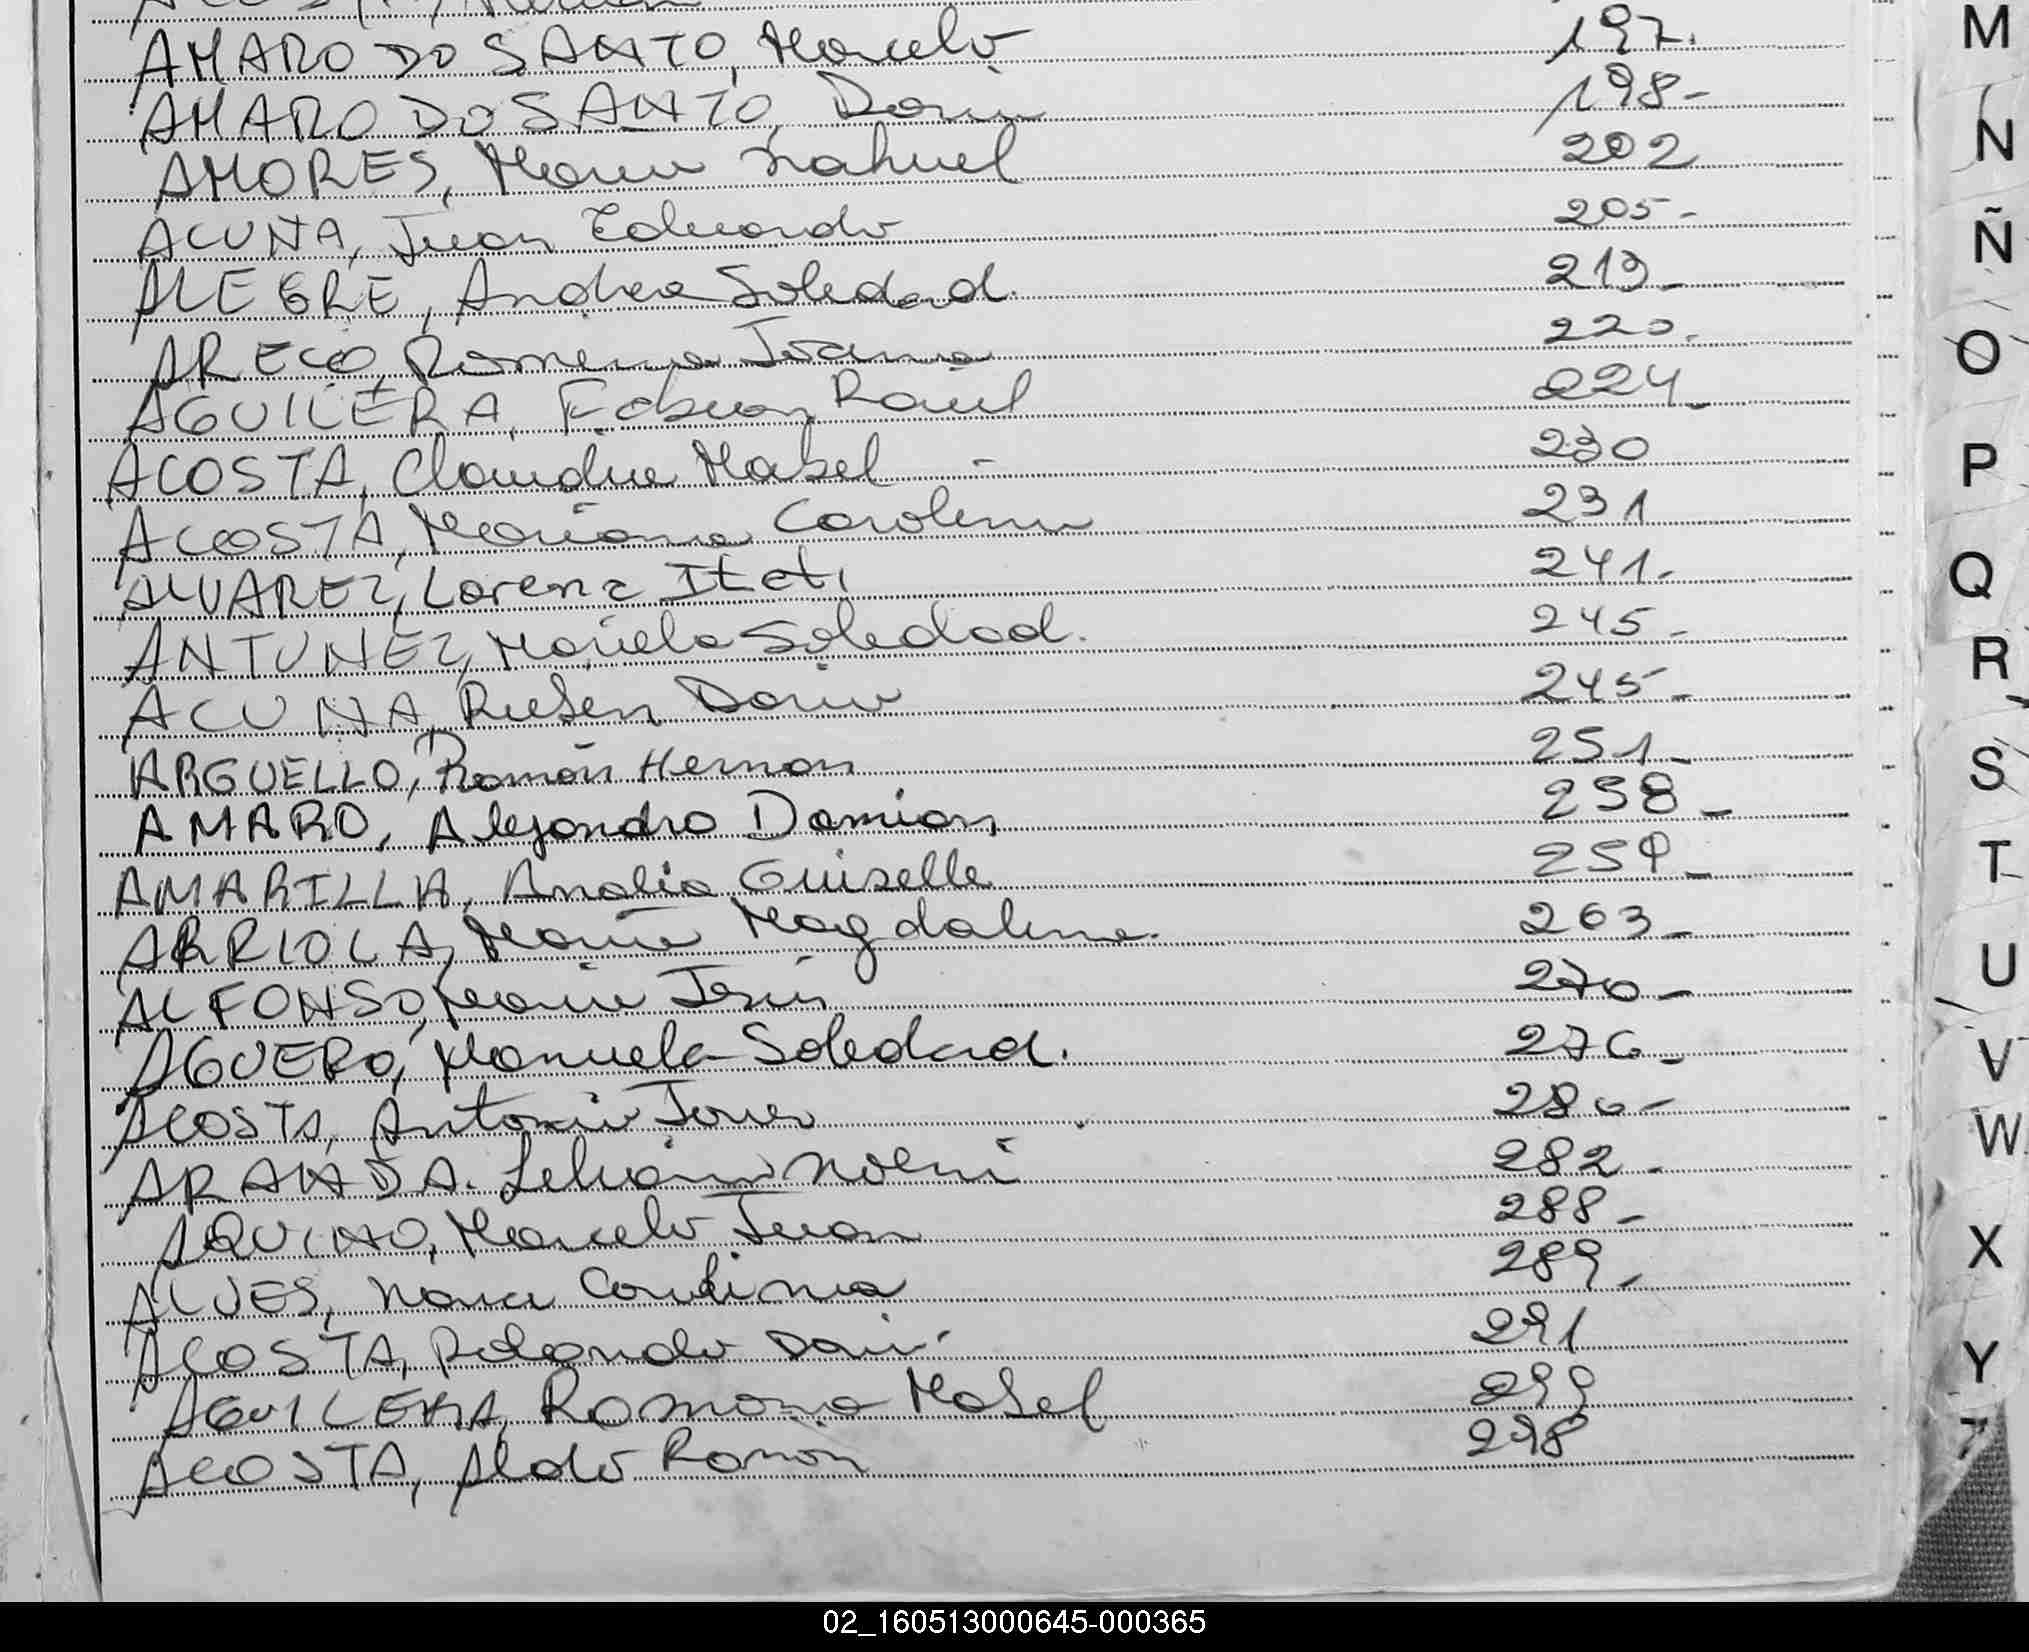 AMARO DO SANTO, Marcelo 197.
AMARO DO SANTO, Dario 198-
AMORES, Mario Nahuel 202
ACUÑA, Juan Eduardo 205-
ALEGRE, Andrea Soledad. 213-
ARECO, Romena Joana 220.
AGUILERA, Fabian Raúl 224-
ACOSTA, Claudia Mabel - 230
ACOSTA, Mariana Carolina 231
ALVAREZ, Lorena Itati 241-
ANTUNEZ, Mariela Soledad. 245-
ACUNA, Ruben Dario 245-
ARGUELLO, Ramón Hernan 251-
AMARO, Alejandro Damian 258-
AMARILLA, Analia Guiselle 259-
ARRIOLA, Maria Magdalena. 263-
ALFONSO, Maria Jesús 270-
AGUERO, Manuela Soledad. 276-
ACOSTA, Antonio 280-
ARANDA. Noemi 282-
AQUINO, Marcelo Juan 288-
ALVES, 289-
ACOSTA, Rolando Dario 291
AGUILERA, Romona Mabel 299
ACOSTA, Aldo Ramon 298
M
N
Ñ
O
P
Q
R
S
T
U
V
W
X
Y
02_160513000645-000365